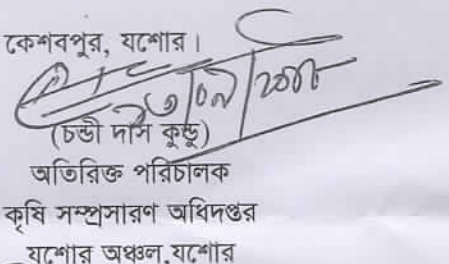 কেশবপুর, যশোর।
(চন্ডী দাস কুন্ডু)
অতিরিক্ত পরিচালক
কৃষি সম্প্রসারণ অধিদপ্তর
যশোর অঞ্চল,যশোর